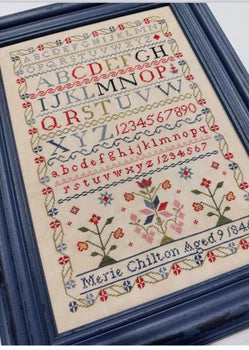 ABCDEFGHIJKLMN
OPQRSTUVWXYZ
ABCDEFGH
IJKLMNOP
QRSTUVW
XYZ1234567890
abcdefghijklmnopq
rstuvwxyz1234567
Merie Chilton Aged 9 184